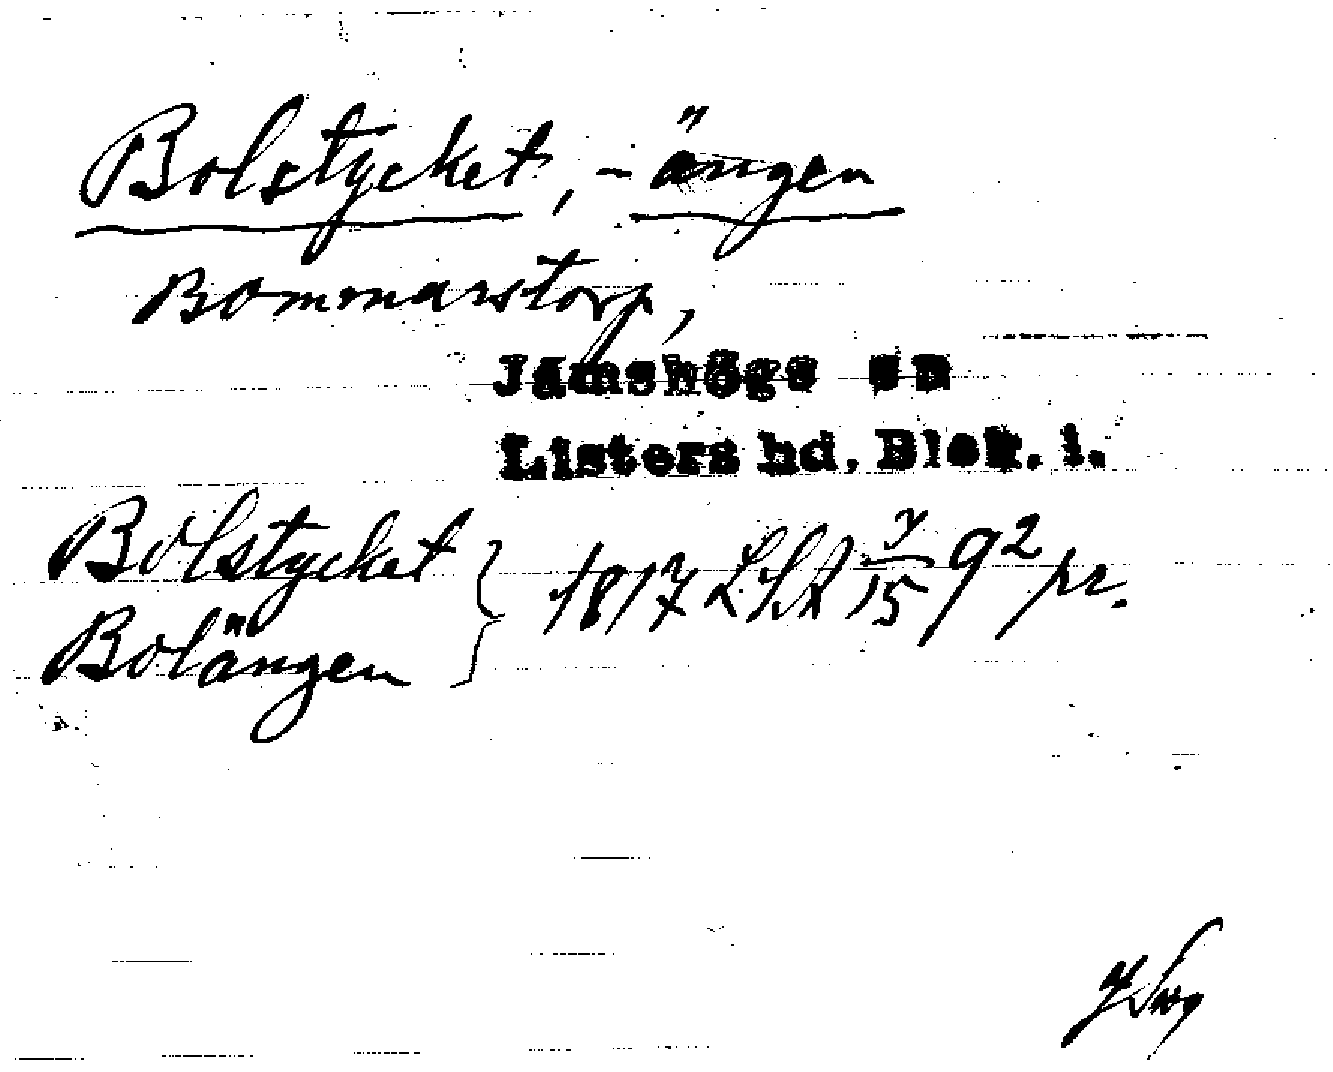 Bolstycket, -ängen
Bommarstorp,
Jämshögs sn
Listers hd, Blek. l.
Bolstycket
Bolängen } 1817 LSA 7/15 9² pr.